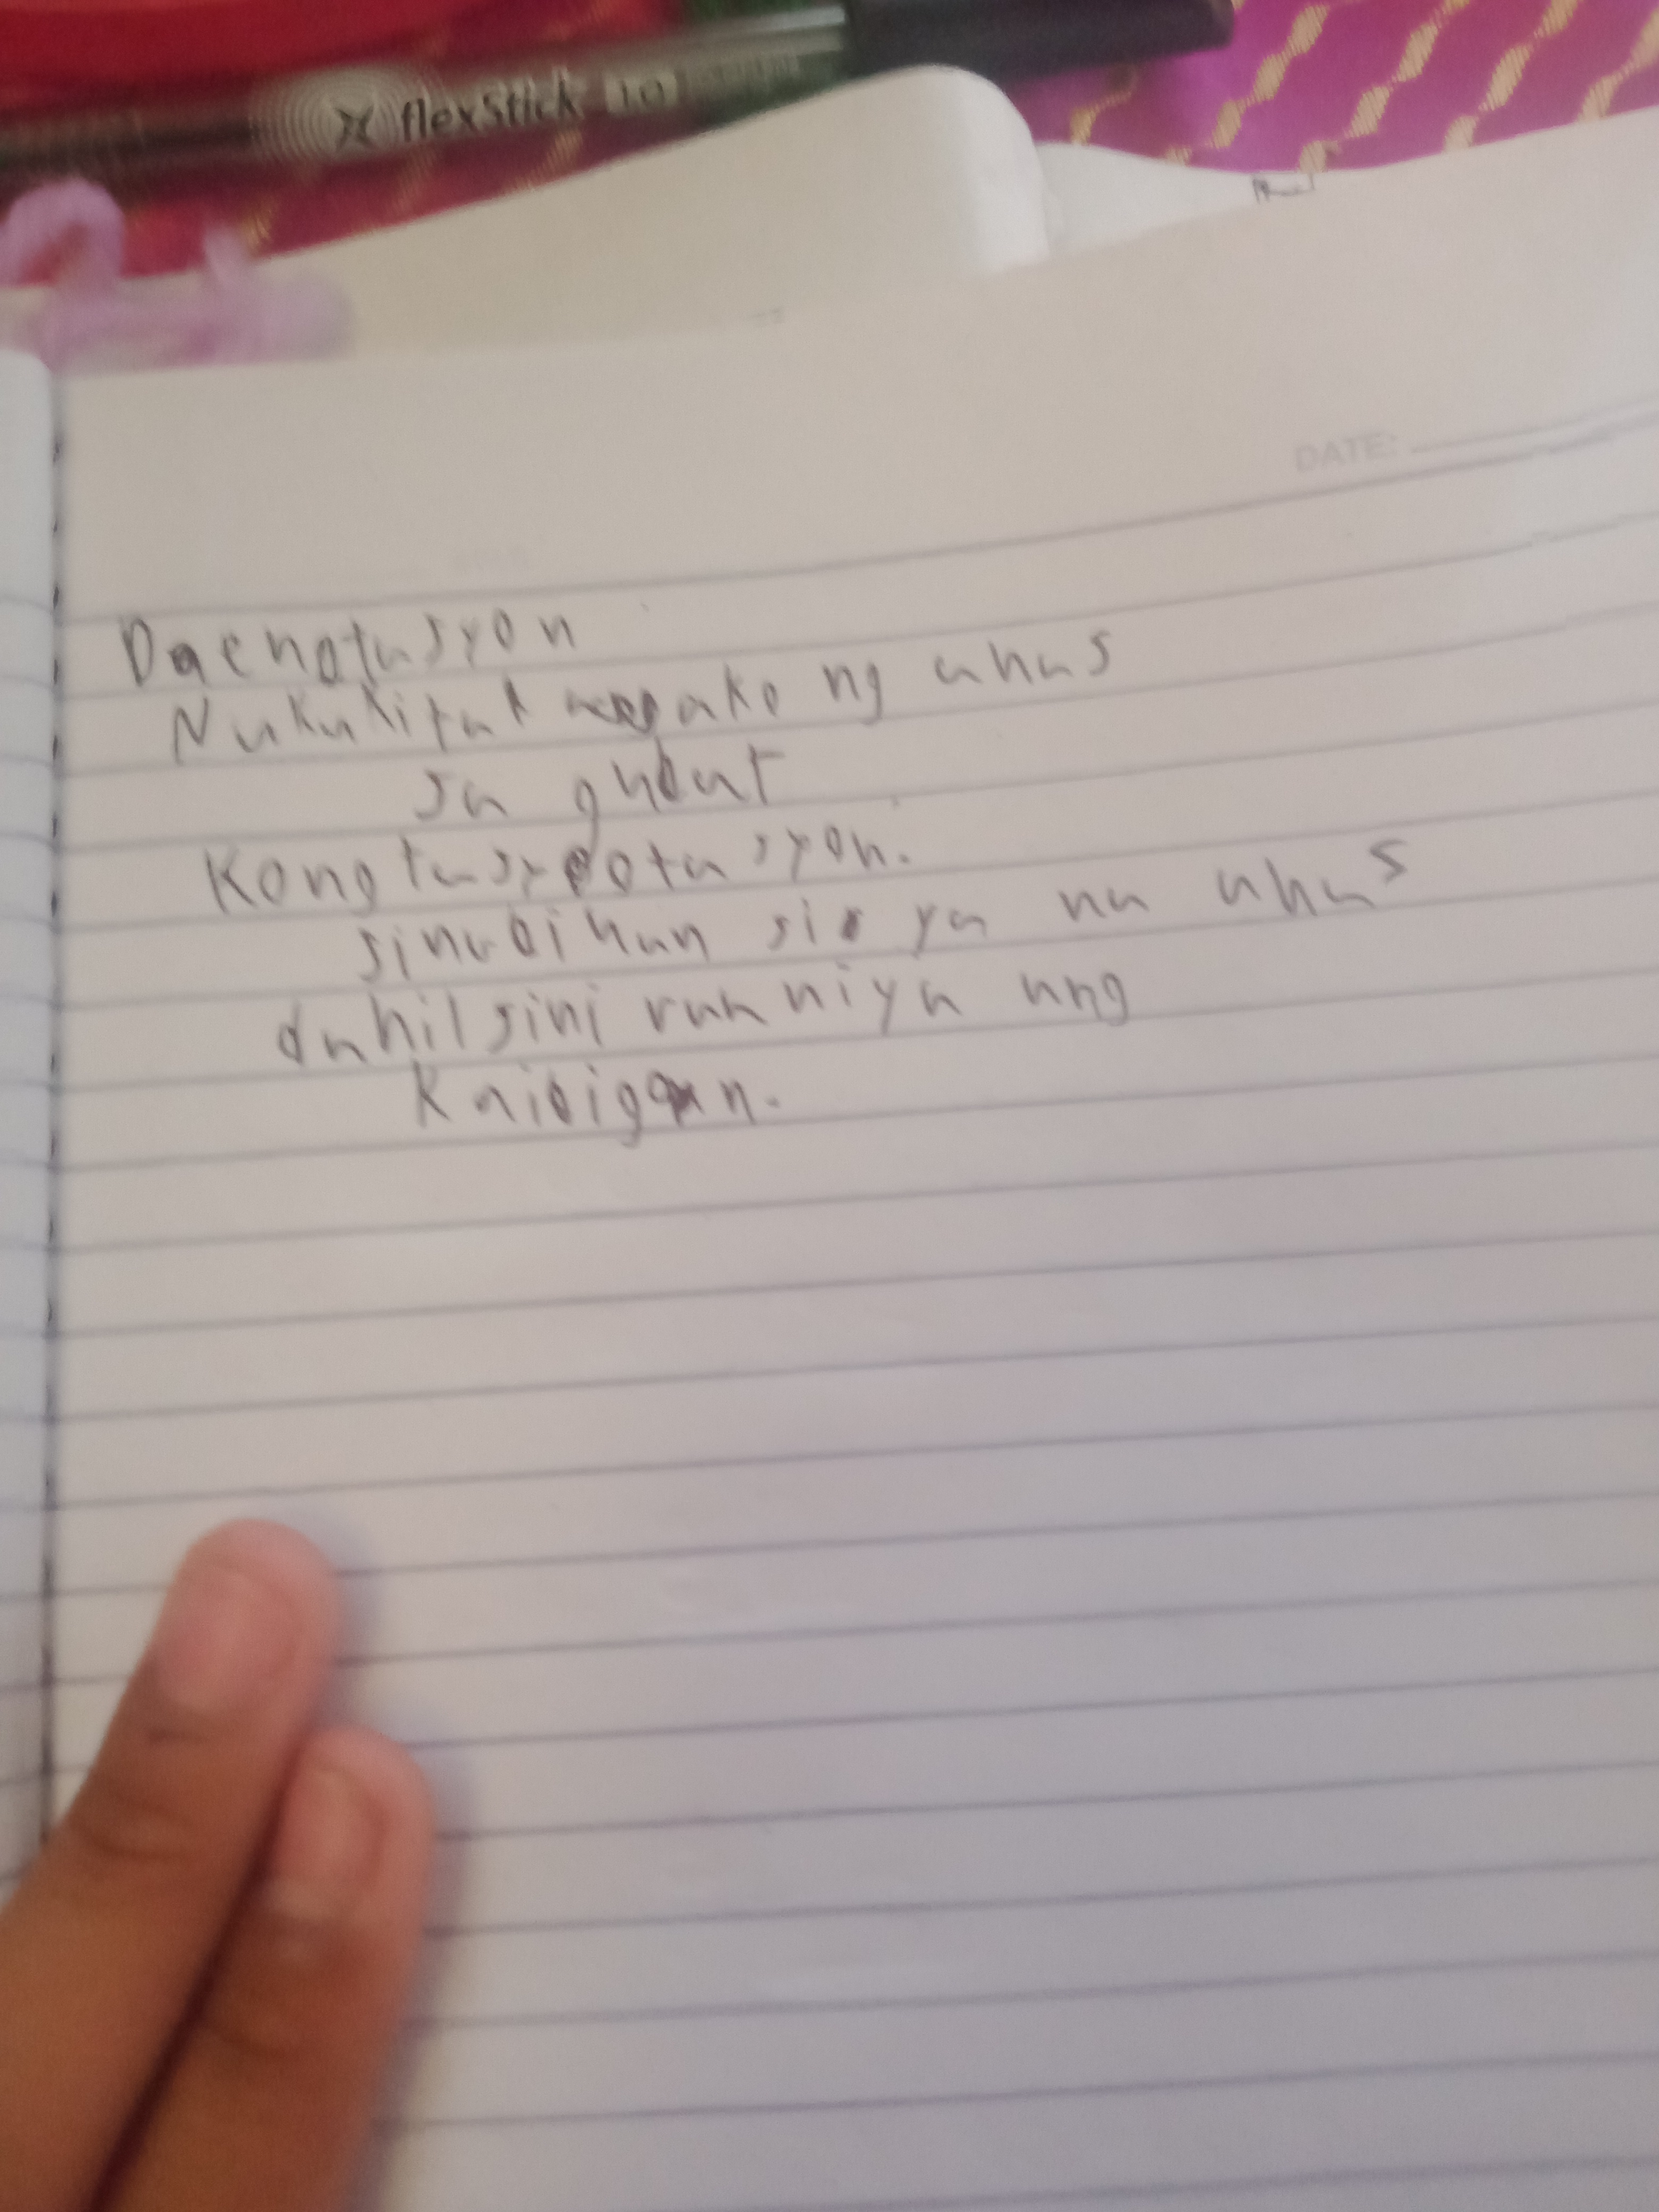 flexstick 1.0
DATE:
Daenotasyon
Nakakitak ako ng ahas
sa gubat
Kongtasyootasyon.
sinabihan sis ya na ahas
dahil sini rah niya ang
Kaibigan.